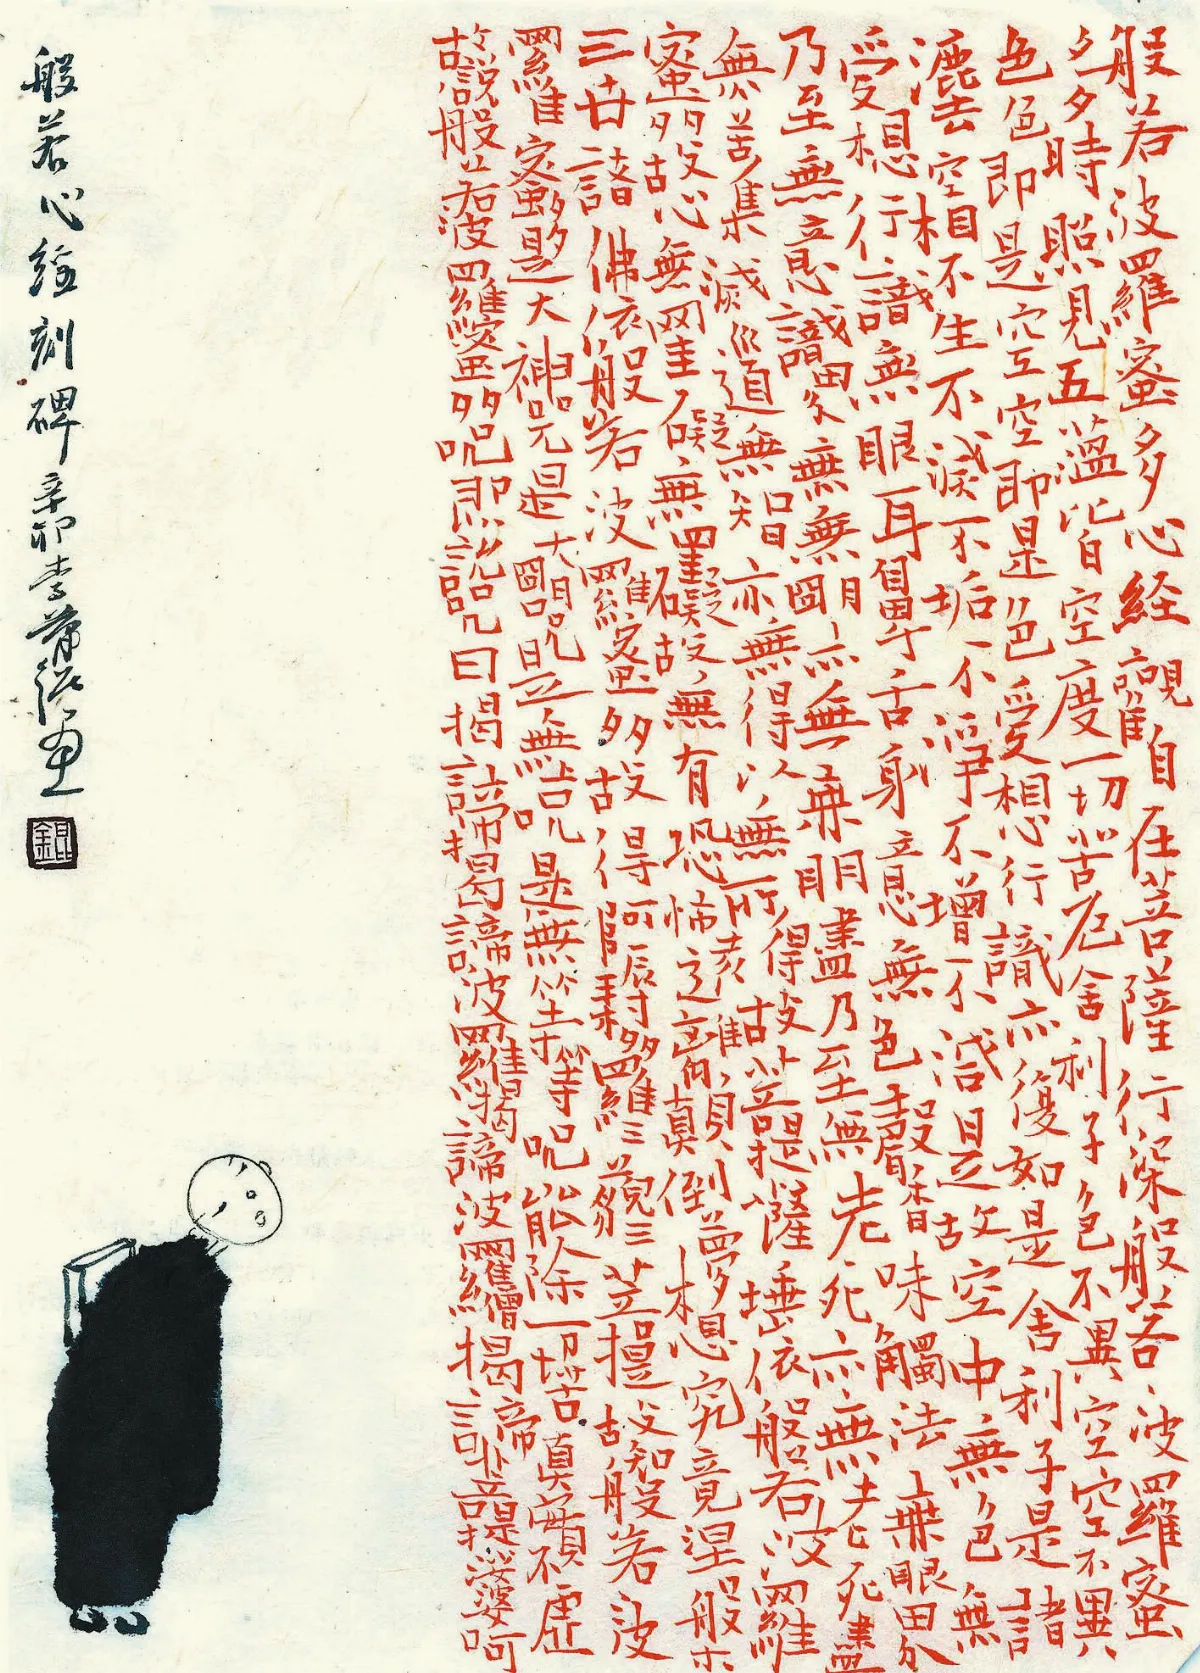 般若波羅蜜多心経觀自在菩薩行深般若波羅蜜
多時照見五蘊皆空度一切苦厄舍利子色不異空空不異
色色即是空空即是色受想行識亦復如是舍利子是諸
灋空相不生不滅不垢不淨不增不減是故空中無色無
受想行識無眼耳鼻舌身意無色聲香味觸法無眼界
乃至無意識界無無明亦無無明盡乃至無老死亦無老死盡
無苦集滅道無智亦無得以無所得故菩提薩埵依般若波羅
蜜多故心無罣礙無罣礙故無有恐怖遠離顛倒夢想究竟涅槃
三世諸佛依般若波羅蜜多故得阿耨多羅三藐三菩提故知般若波
羅蜜多是大神咒是大明咒是無上咒是無等等咒能除一切苦真實不虛
故說般若波羅蜜多咒即說咒曰揭諦揭諦波羅揭諦波羅僧揭諦菩提娑婆訶
般若心經刻碑 辛卯李蕭錕画
錕